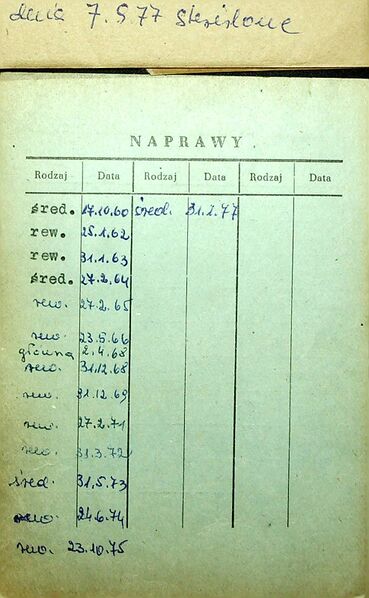 dnia 7.5.77 skreślone
NAPRAWY
Rodzaj Data Rodzaj Data Rodzaj Data
śred. 17.10.60 śred. 31.1.77
rew. 25.1.62
rew. 31.1.63
śred. 27.2.64
rew. 27.2.65
rew. 23.5.66
główna 2.4.68
rew. 31.12.68
rew. 31.12.69
rew. 27.2.71
rew. 31.3.72
śred. 31.5.73
rew. 24.6.74
rew. 23.10.75